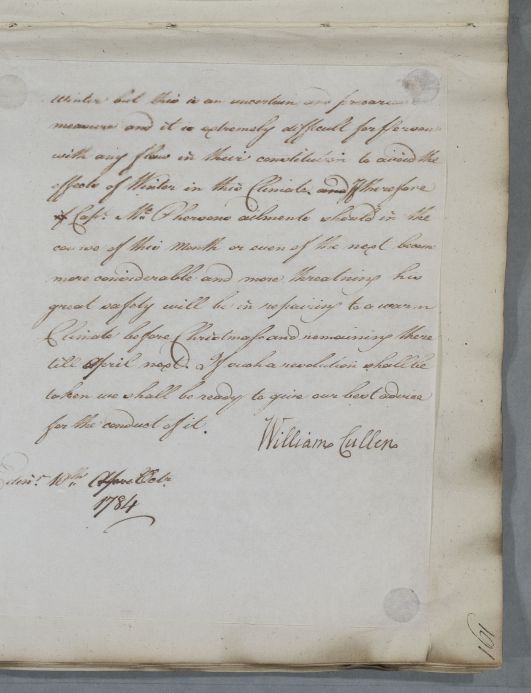 Winter but this is an uncertain and precarious
measure and it is extremely difficult for Persons
with any flaw in their constitution to avoid the
effects of Winter in this Climate and Therefore
if Capt. Mc Phersons ailments should in the
course of this Month or even of the next become
more considerable and more threatning his
great safety will be in repairing to a warm
Climate before Christmass and remaining there
till April next. If such a revolution shall be
taken we shall be ready to give our best advice
for the conduct of it.
William Cullen
Edinr. 10th Octr.
1784
161